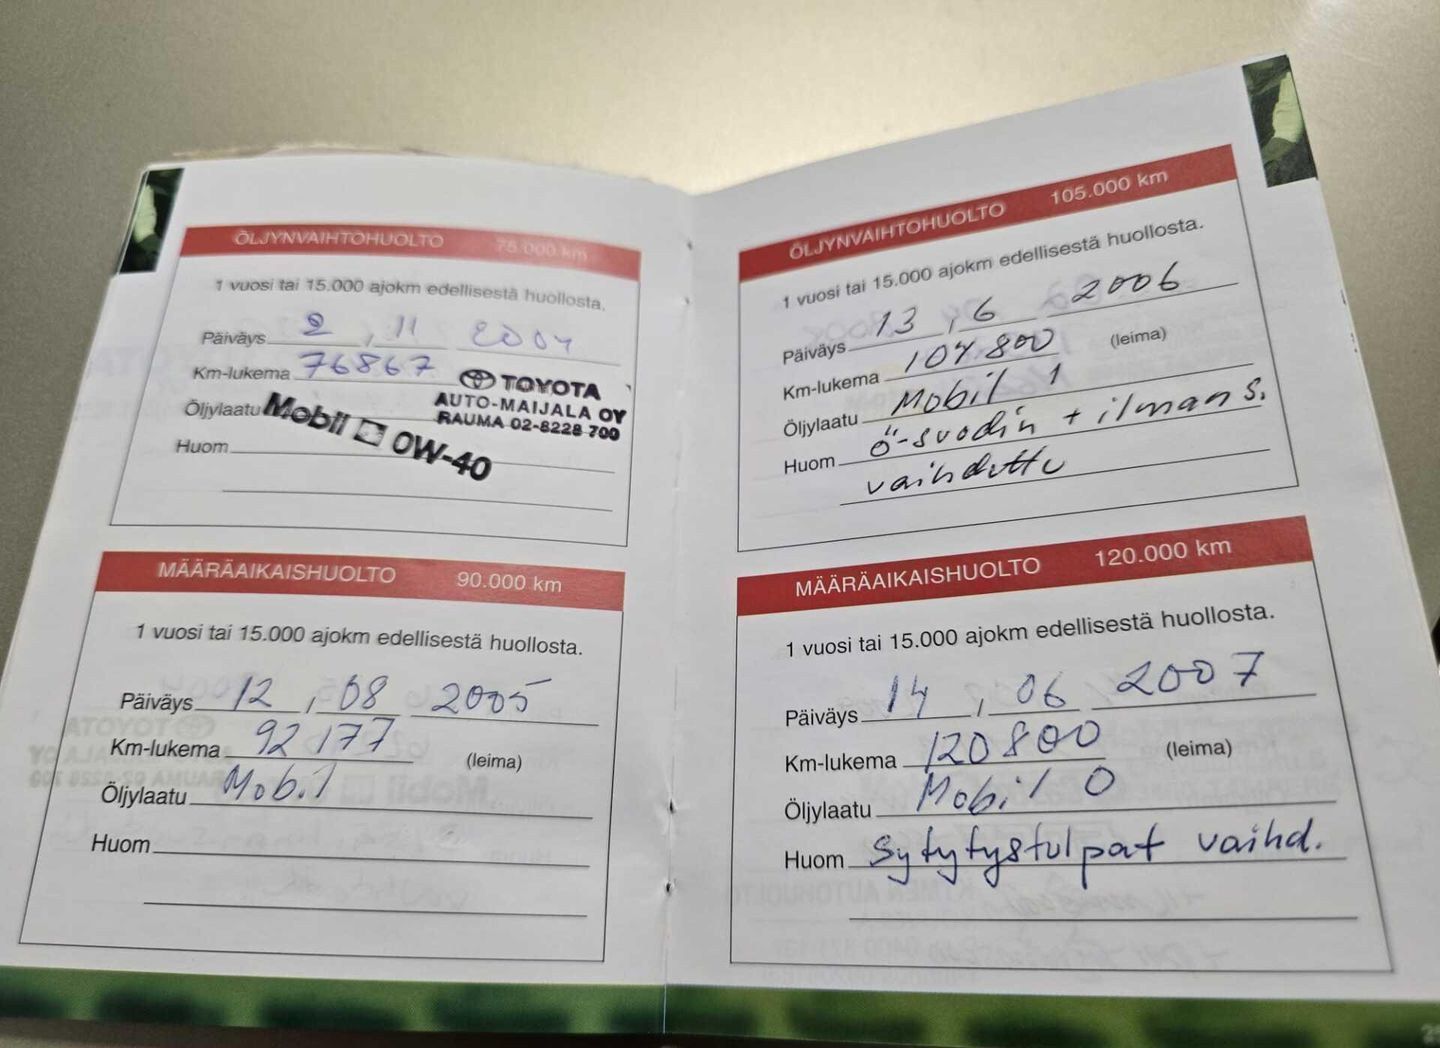 ÖLJYNVAIHTOHUOLTO 75.000 km
1 vuosi tai 15.000 ajokm edellisestä huollosta.
Päiväys 2 , 11 2004
Km-lukema 76867
TOYOTA
AUTO-MAIJALA OY
RAUMA 02-8228 700
Öljylaatu Mobil 1 0W-40
Huom
MÄÄRÄAIKAISHUOLTO 90.000 km
1 vuosi tai 15.000 ajokm edellisestä huollosta.
Päiväys 12 , 08 2005
Km-lukema 92177 (leima)
Öljylaatu Mobil
Huom
ÖLJYNVAIHTOHUOLTO 105.000 km
1 vuosi tai 15.000 ajokm edellisestä huollosta.
Päiväys 13 , 6 2006
Km-lukema 104.800 (leima)
Öljylaatu Mobil 1
Huom Ö-suodin + ilmans.
vaihdettu
MÄÄRÄAIKAISHUOLTO 120.000 km
1 vuosi tai 15.000 ajokm edellisestä huollosta.
Päiväys 14 , 06 2007
Km-lukema 120800 (leima)
Öljylaatu Mobil 0
Huom Sytytystulpat vaihd.